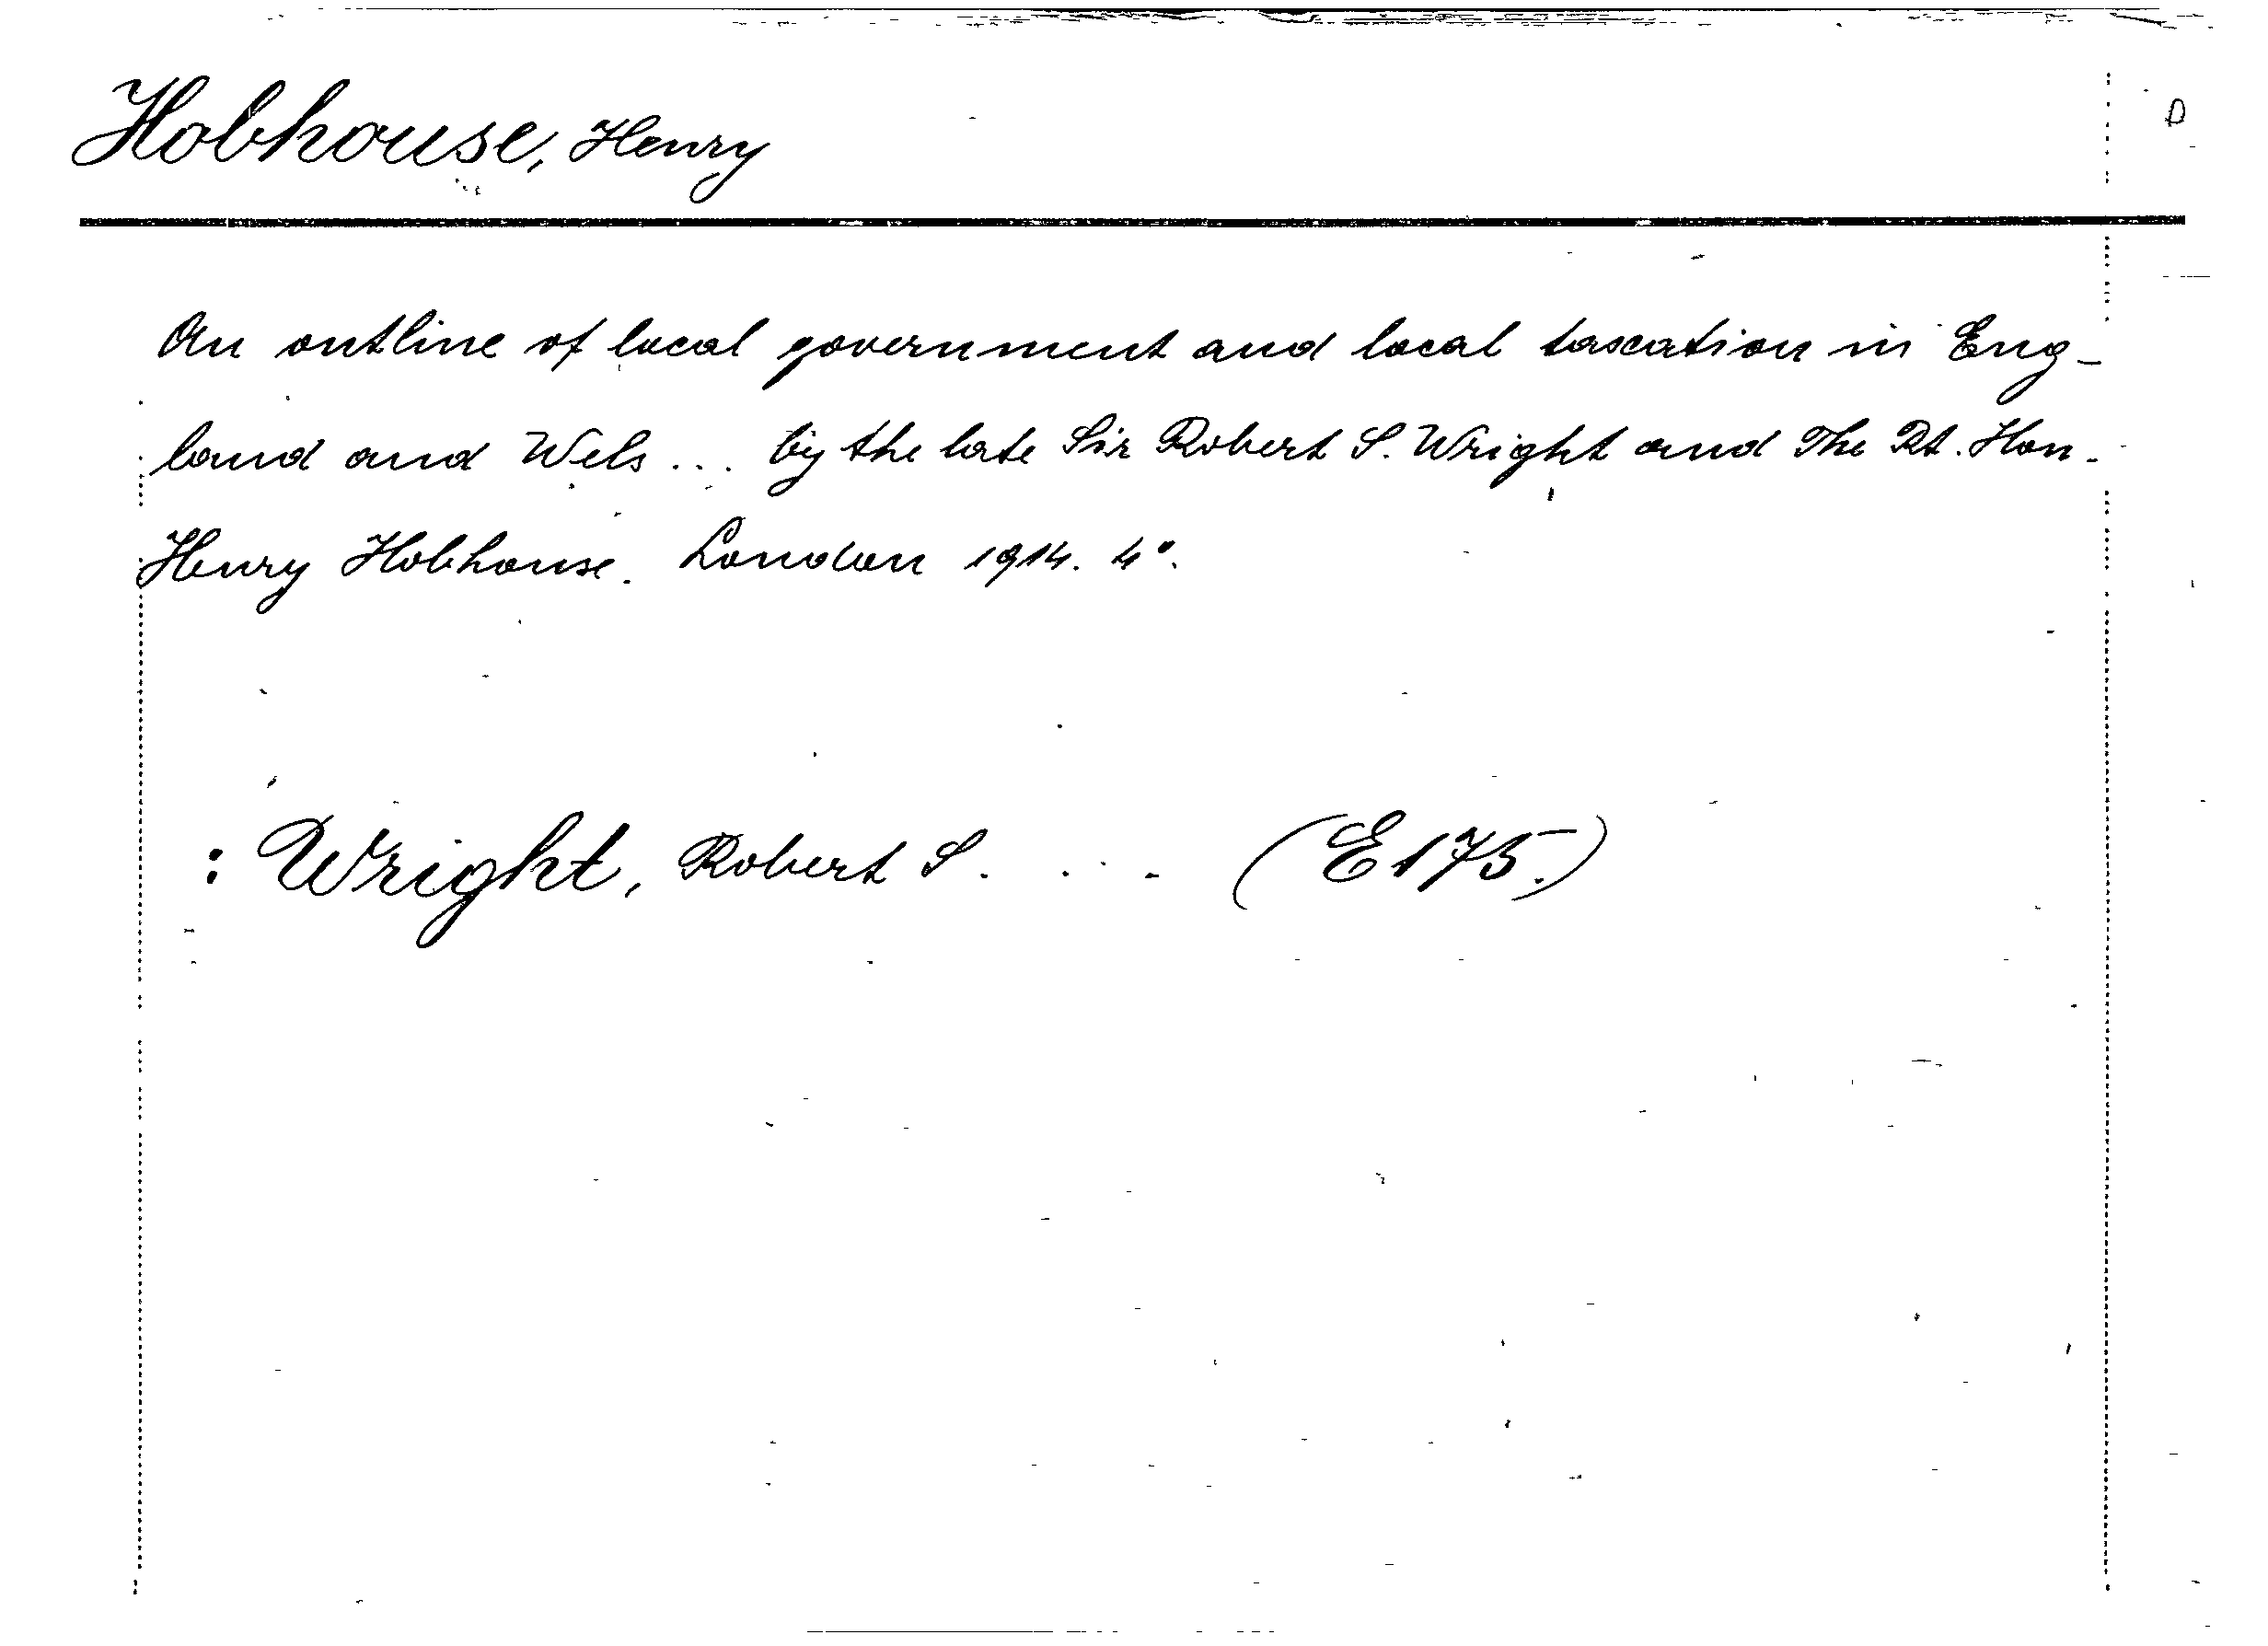 Hobhouse, Henry
D
An outline of local government and local taxation in Eng-
land and Wels ... by the late Sir Robert S. Wright and The Rt. Hon.
Henry Hobhouse. London 1914. 4°.
: Wright, Robert S. . . - (E175.)